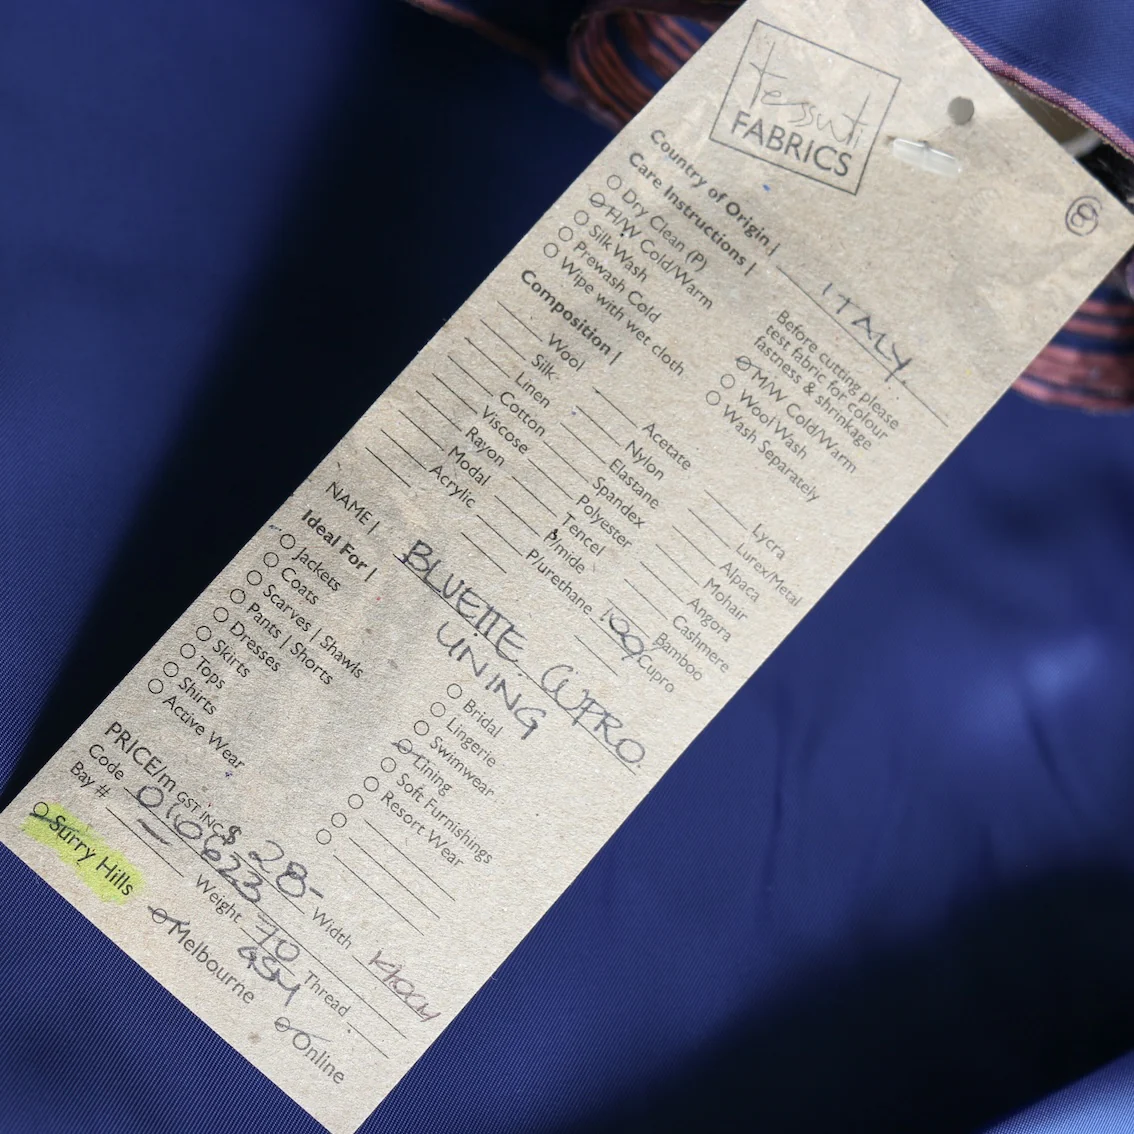 tessuti
FABRICS
Country of Origin | ITALY
Care Instructions |
Dry Clean (P)
H/W Cold/Warm
Silk Wash
Prewash Cold
Wipe with wet cloth
Before cutting please
test fabric for colour
fastness & shrinkage
M/W Cold/Warm
Wool Wash
Wash Separately
Composition |
Wool
Silk
Linen
Cotton
Viscose
Rayon
Modal
Acrylic
Acetate
Nylon
Elastane
Spandex
Polyester
Tencel
P/mide
P/urethane
Lycra
Lurex/Metal
Alpaca
Mohair
Angora
Cashmere
Bamboo
100% Cupro
NAME | BLUETTE CUPRO
LINING
Ideal For |
Jackets
Coats
Scarves | Shawls
Pants | Shorts
Dresses
Skirts
Tops
Shirts
Active Wear
Bridal
Lingerie
Swimwear
Lining
Soft Furnishings
Resort Wear
PRICE/m GST INC $ 28-
Code
Width
Bay #
Weight 70 GSM
Thread
Surry Hills
Melbourne
Online